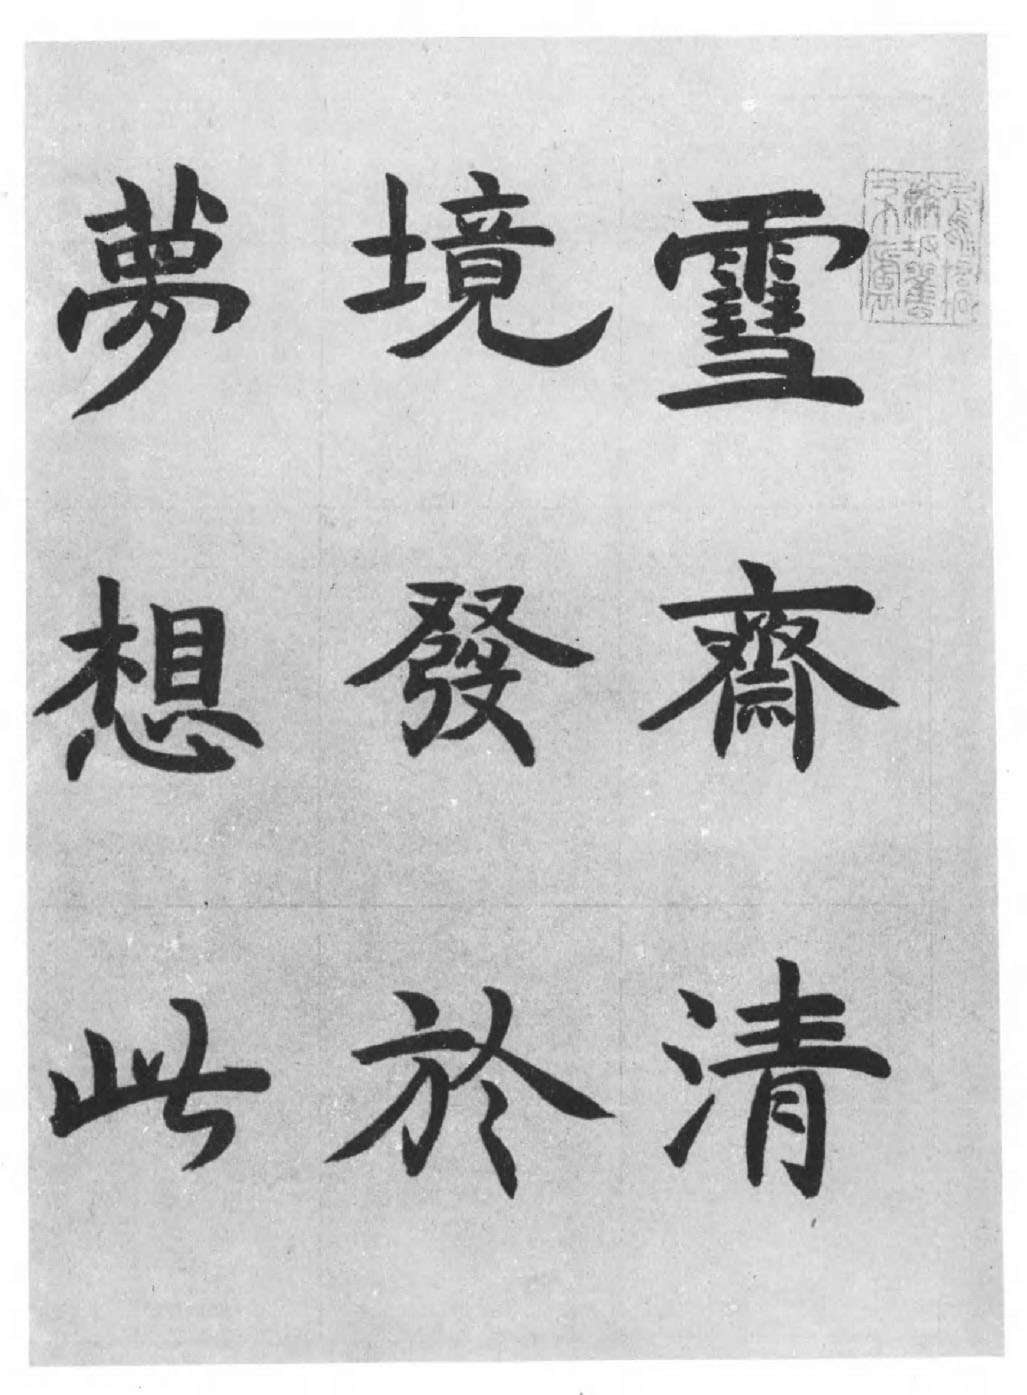 雪齋清
境發於
夢想此